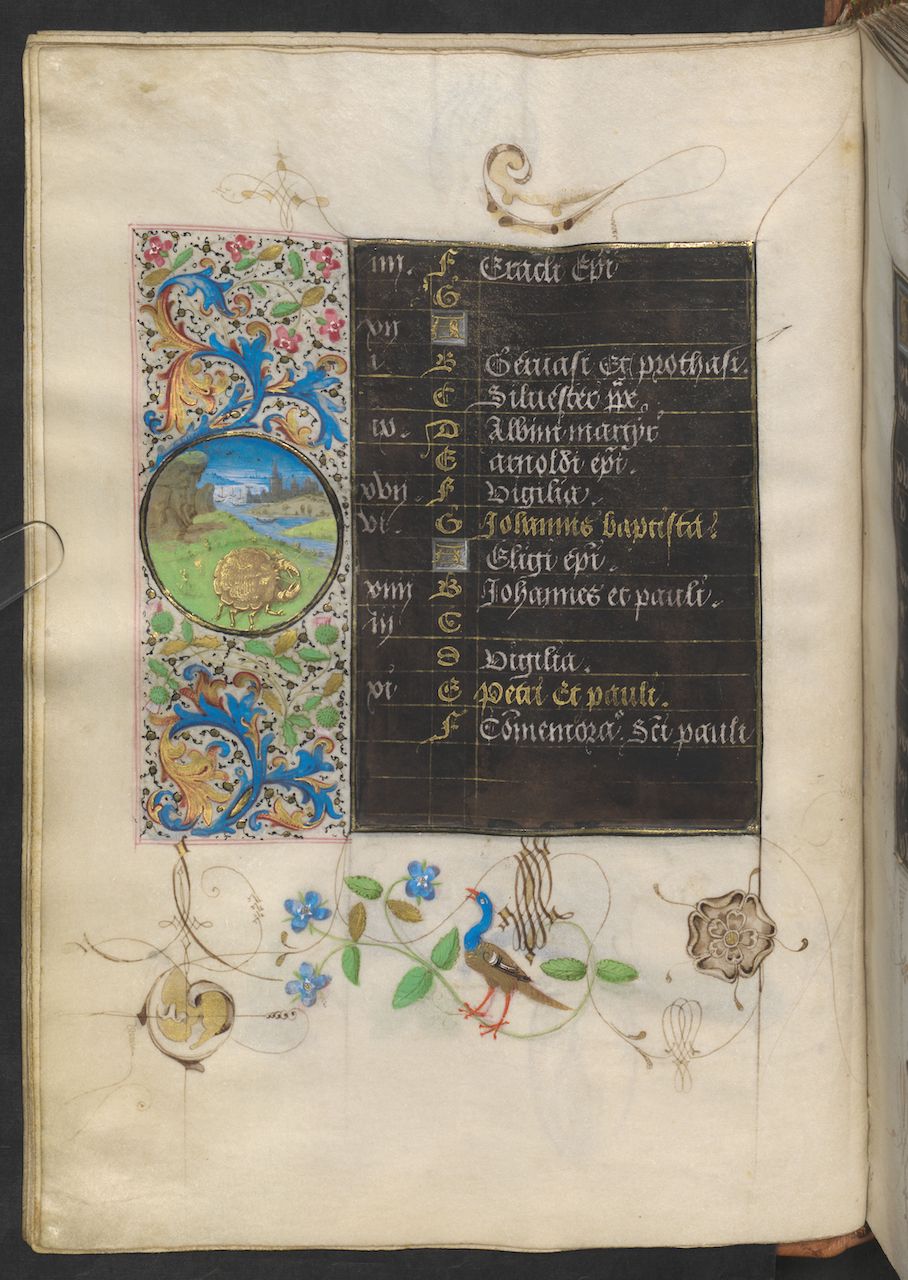 iiij. F Eracli Epi
G
xvij A
i B Geruasi Et prothasi.
C Siluester pp
ix. D Albini martyr
E arnoldi epi.
xvij F Vigilia.
vi. G Johannis baptista
A Eligi epi.
xiiij B Johannes et pauli.
iij C
D Vigilia.
xi E Petri Et pauli.
F Comemora. Sci pauli